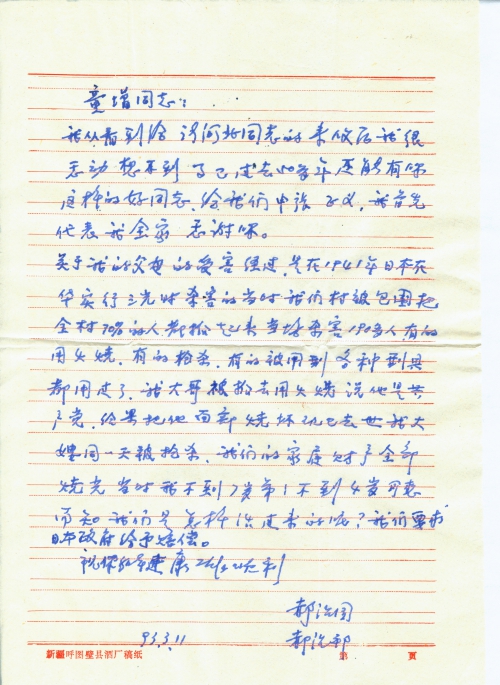 童增同志:
我从看到给 河北同志的来收后我很
感动想不到 了已过去40多年还能有你
这样的好同志,给我们申张正义,我首先
代表我全家 感谢你。
关于我的父母的受害经过,是在1941年日本在
华实行三光时杀害的当时我们村被包围起
全村 的人都抢起来当场杀害190多人有的
用火烧,有的枪杀,有的被用到各种刑具
都用过了,我大哥被抢去用火烧说他是共
产党,结果把他面部烧坏现已去世我大
嫂同一天被枪杀,我们的家庭财产全部
烧光当时我不到7岁弟1不到4岁可想
而知我们是怎样活过来的呢?我们要求
日本政府给予赔偿。
祝你 健康工作顺利
郝治国
郝治邦
93.3.11
新疆呼图壁县酒厂稿纸 第 页